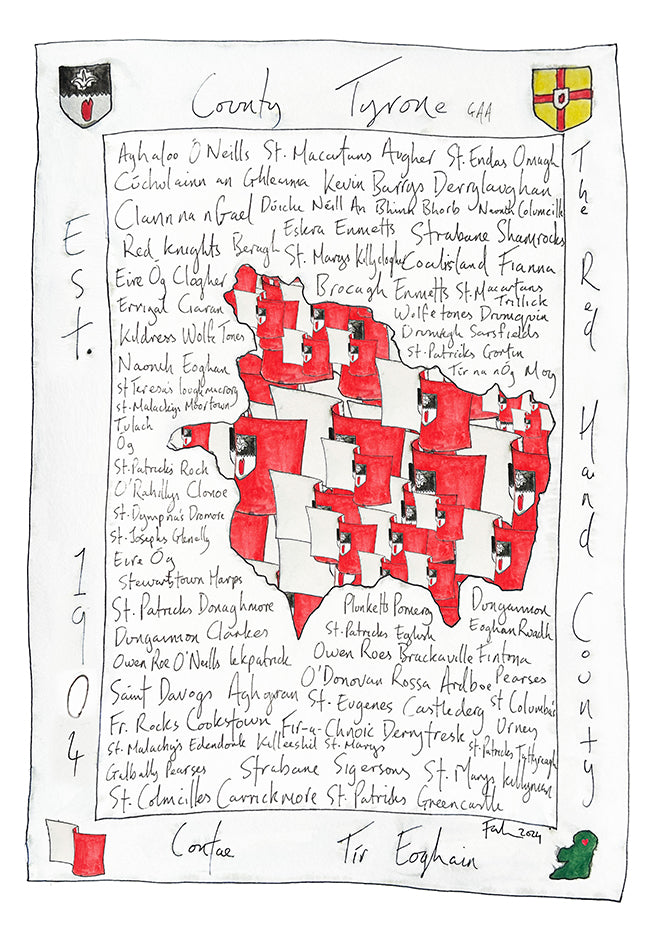 County Tyrone GAA
Aghaloo O'Neills St. Macartans Augher St. Endas Omagh
Cúchulainn an Ghleanna Kevin Barrys Derrylaughan
Clann na nGael Dúiche Néill An Bhinn Bhorb Naomh Columcille
Eskra Emmetts Strabane Shamrocks
Red Knights Beragh St. Marys Killyclogher Coalisland Fianna
Eire Óg Clogher
Brocagh Emmetts St. Macartans Trillick
Errigal Ciaran
Wolfetones Drumquin
Kildress Wolfe Tones
Drumragh Sarsfields
St. Patricks Gortin
Naomh Eoghan
Tír na nÓg Moy
St Teresa's Loughmacrory
St. Malachys Moortown
Tulach
Óg
St. Patricks Rock
O'Rahillys Clonoe
St. Dympna's Dromore
St. Josephs Glenelly
Eire Óg
Stewartstown Harps
St. Patricks Donaghmore
Plunketts Pomeroy
Dungannon
Eoghan Ruadh
Dungannon Clarkes
St. Patricks Eglish
Owen Roe O'Neills Leckpatrick
Owen Roes Brackaville Fintona
Pearses
O'Donovan Rossa Ardboe
Saint Davogs Aghyaran St. Eugenes Castlederg St Columba's
Urney
Fr. Rocks Cookstown Fir-a-Chnoic Derrytresk
St. Malachy's Edendork Killeeshil St. Marys
St. Patricks Tattyreagh
Galbally Pearses Strabane Sigersons St. Marys Killyman
St. Colmcilles Carrickmore St. Patricks Greencastle
2024
Est. 1904
The Red Hand County
Contae Tír Eoghain